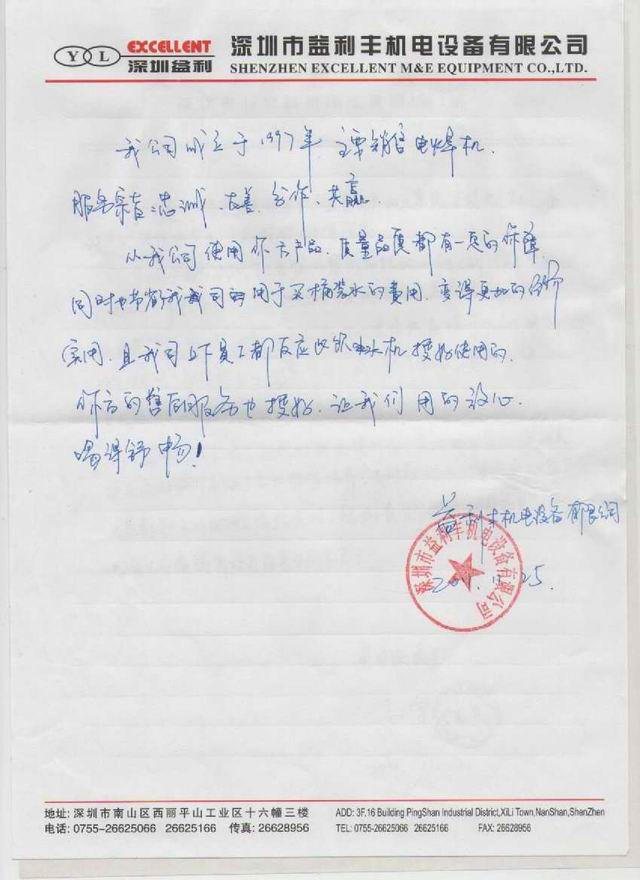 YL EXCELLENT 深圳益利
深圳市益利丰机电设备有限公司
SHENZHEN EXCELLENT M&E EQUIPMENT CO.,LTD.
我公司成立于1997年 主要销售电焊机
服务宗旨:忠诚、友善、合作、共赢
从我公司使用 产品,质量品质都有一定的保障
同时也节省了我司 用于买桶装水的费用,变得更加的经济
实用,且我司上下员工都反应 饮水机挺好使用的,
你方的售后服务也挺好,让我们用的放心
喝得舒畅!
益利丰机电设备有限公司
深圳市益利丰机电设备有限公司
25
地址: 深圳市南山区西丽平山工业区十六幢三楼
电话: 0755-26625066 26625166 传真: 26628956
ADD: 3F,16 Building PingShan Industrial District,XiLi Town,NanShan,ShenZhen
TEL: 0755-26625066 26625166 FAX: 26628956